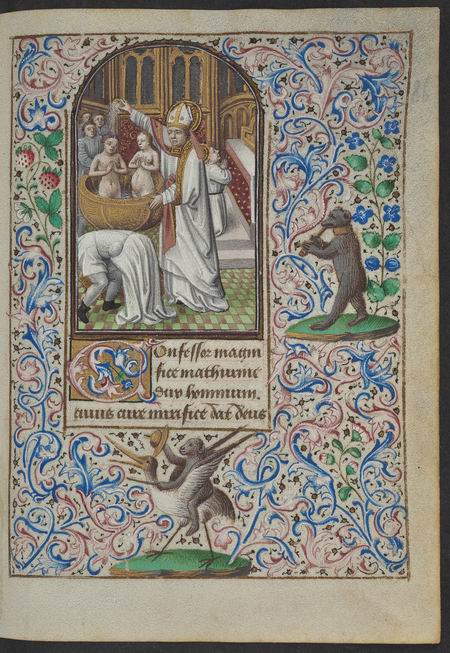 Confessor magni
fice mathurine
Cuy hominum.
cuius cure mirifice dat deus